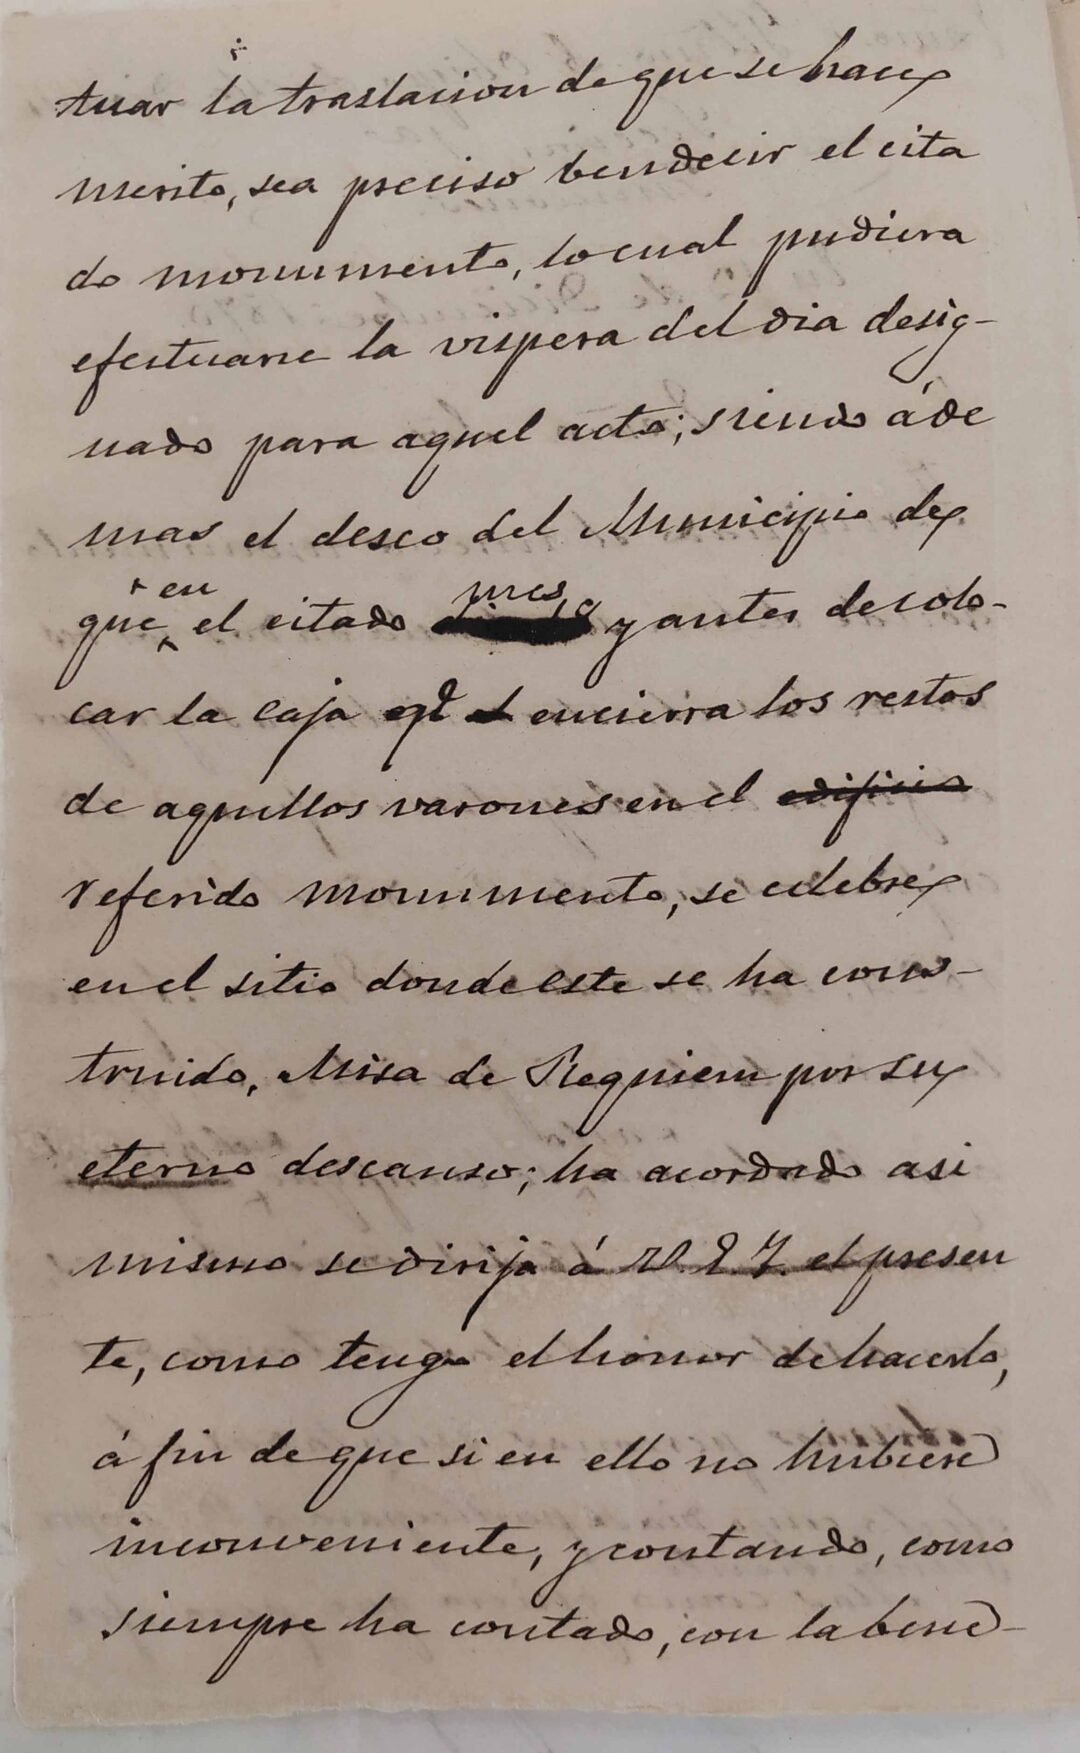 tuar la traslacion de que se hace
merito, sea preciso bendecir el cita
do monumento, lo cual pudiera
efectuarse la vispera del dia desig-
nado para aquel acto; siendo áde
mas el deseo del Municipio de
en
que el citado y antes de colo-
car la caja qe encierra los restos
de aquellos varones en el edificio
referido monumento, se celebre
en el sitio donde este se ha cons-
truido, Misa de Requiem por su
eterno descanso; ha acordado asi
mismo se dirija á V. E. Y. el presen
te, como tengo el honor de hacerlo,
á fin de que si en ello no hubiere
inconveniente, y contando, como
siempre ha contado, con la bene-